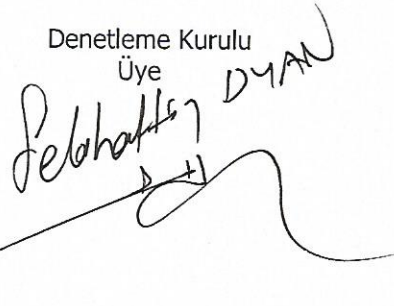 Denetleme Kurulu
Üye
Selahattin DYAN